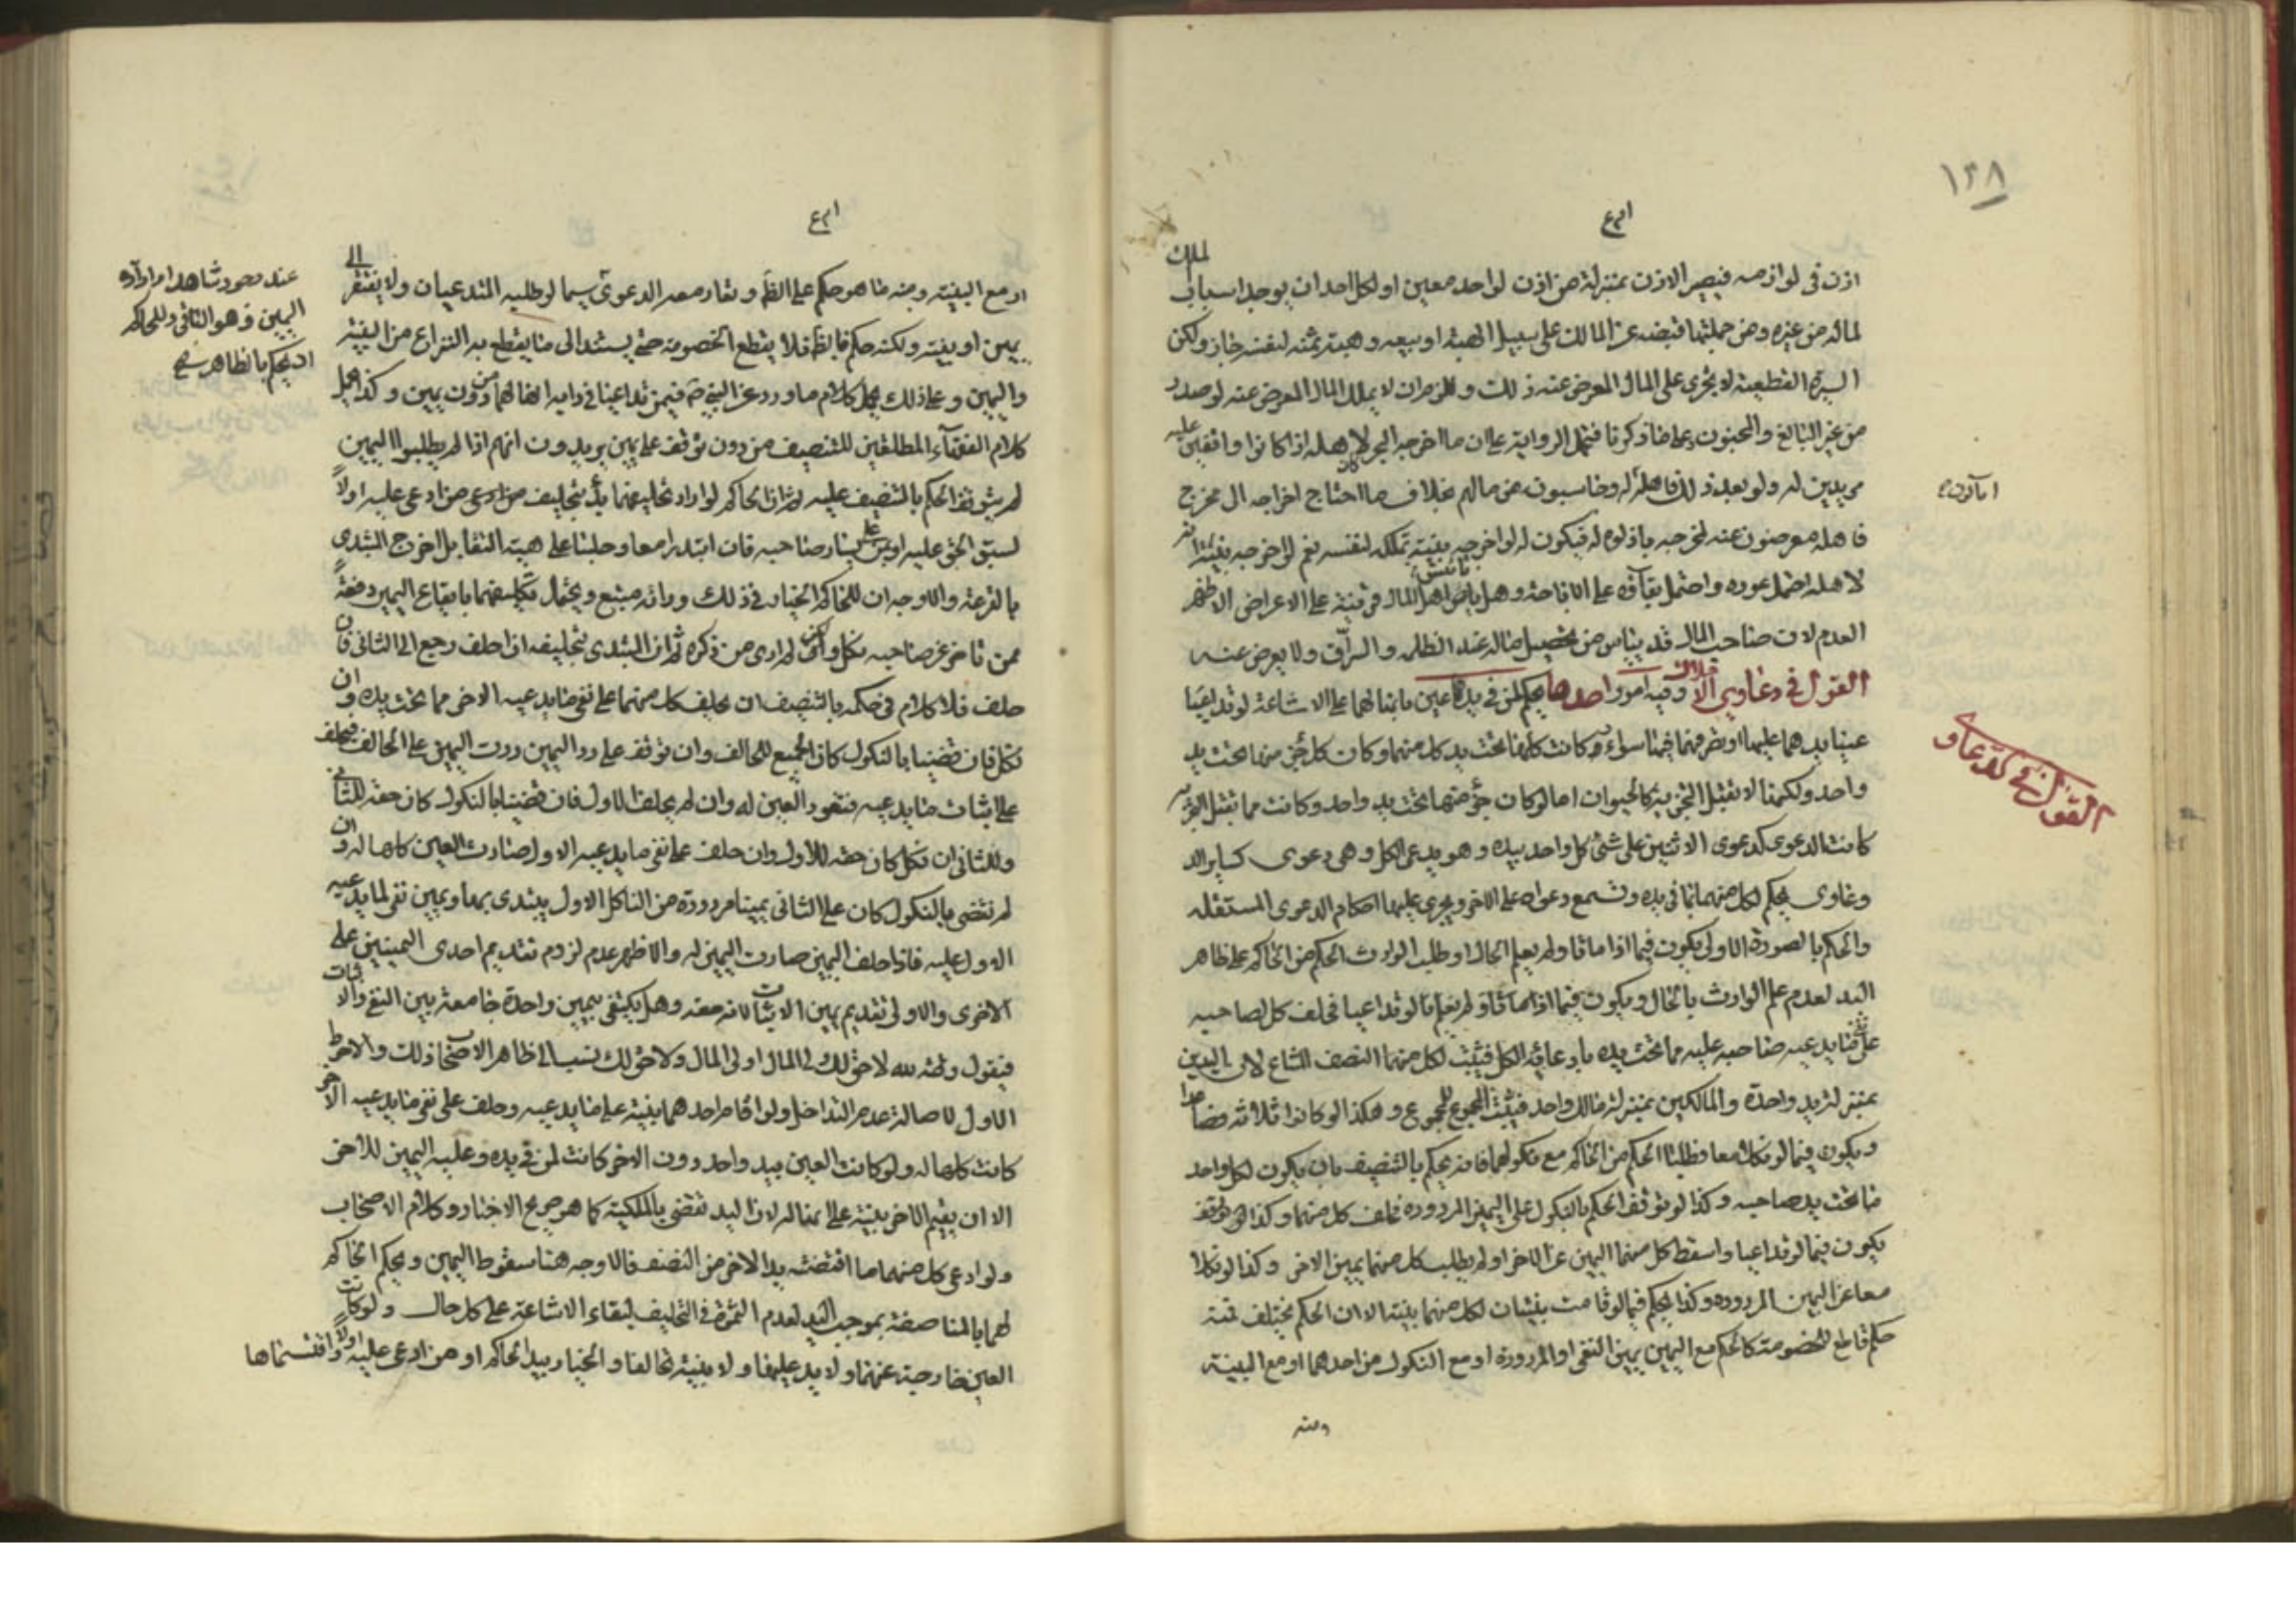 ١٣٨
اذن فى لوازمه فيصير الاذن بمنزلة من اذن لواحد معين او لكل احد ان يوجد اسباب الملك
لماله من غيره ومن جملتها قبضه عن المالك على سبيل الهبة او بيعه وهبة ثمنه لنفسه جاز ولكن
السيرة القطعية لا تجرى على المال المعرض عنه ذلك وللزم ان لا يملك المال المعرض عنه لو صدر
من غير البالغ والمجنون وعلى ما ذكرنا فتحمل الرواية على ان ما اخرجه البحر لاهله اذا كانوا واقفين عليه
مريدين له ولو بعد ذلك فاهله له وخاسبون من مالهم بخلاف ما احتاج اخراجه الى مخرج
فاهله معرضون عنه لمخرجه باذلوه له فيكون له لو اخرجه بنية تملكه لنفسه نعم لو اخرجه بنية انه
لاهله احتمل عوده واحتمل بقاؤه على الاباحة وهل ياس اهل المال قرينة على الاعراض الاظهر
العدم لان صاحب المال قد يياس من تحصيل ماله عند الظلمه والسراق ولا يعرض عنه
القول فى دعاوى الاملاك وفيه امور احدها يحكم لمن فى يدهما عين بانها لهما على الاشاعة لو تداعيا
عينا يدهما عليها او تصرفهما فيها سواء وكانت كلها تحت يد كل منهما وكان كل جزء منها تحت يد
واحد ولكنها لا تقبل التجزية كالحيوان اما لو كان جزء منها تحت يد واحد وكانت مما تقبل التجزية
كانت الدعوى كدعوى الاثنين على شئ كل واحد بيده وهو يدعى الكل وهى دعوى كساير الد
وعاوى يحكم لكل منهما بما فى يده وتسمع دعواه على الاخر ويجرى عليها احكام الدعوى المستقله
والحكم بالصورة الاولى يكون فيما اذا ماتا ولم يعلم الحال او طلب الوارث الحكم من الحاكم على ظاهر
اليد لعدم علم الوارث بالحال ويكون فيما اذا تداعيا فحلف كل لصاحبه
على نفى ما يدعيه صاحبه عليه مما تحت يده بادعائه الكل فيثبت لكل منهما النصف المشاع لان اليدين
بمنزلة يد واحدة والمالكين بمنزلة مالك واحد فيثبت المجموع للمجموع وهكذا لو كانوا ثلاثه فصاعدا
ويكون فيما لو نكلا معا وطلبا الحكم من الحاكم مع نكولهما فانه يحكم بالتنصيف بان يكون لكل واحد
ما تحت يد صاحبه وكذا لو توقف الحكم بالنكول على اليمين المردوده فحلف كل منهما وكذا
يكون فيما لو تداعيا واسقط كل منهما اليمين عن الاخر او لم يطلب كل منهما يمين الاخر وكذا لو نكلا
معا عن اليمين المردوده وكذا يحكم فيما لو قامت بينتان لكل منهما بينة الا ان الحكم يختلف فمنه
حكم قاطع للخصومة كالحكم مع اليمين يمين النفى او المردودة او مع النكول من احدهما او مع البينة
ومنه
القول فى الدعاو
او مع البينة ومنه ما هو حكم على الظ وتقار معه الدعوى سيما لو طلبه المتدعيان ولا يفتقر الى
يمين او بينة ولكنه حكم فلا يقطع الخصومة حتى يستند الى ما يقطع به النزاع من البينة
واليمين وعلى ذلك يحمل كلام ما ورد عن النبى ص فيمن تداعيا فى دابة انها لهما من دون يمين وكذا يحمل
كلام الفقهاء المطلقين للتنصيف من دون توقف على يمين يريدون انهم اذا لم يطلبوا اليمين
لم يتوقف الحكم بالتنصيف عليه ثم ان الحاكم لو اراد تحليفهما بدأ بتحليف من ادعى عليه اولاً
لسبق الحق عليه او من على يسار صاحبه فان ابتدرا معا وجلسا على هيئة التقابل اخرج المبتدى
بالقرعة والاوجه ان للحاكم الخيار فى ذلك وربما يحتمل تحليفهما بايقاع اليمين دفعةً
ممن تاخر عن صاحبه لم ار من ذكره ثم ان المبتدى بتحليفه اذا حلف رجع الى الثانى فان
حلف فلا كلام فى حكمه بالتنصيف ان يحلف كل منهما على نفى ما يدعيه الاخر مما تحت يده وان
نكل فان قضينا بالنكول كان الجميع للحالف وان توقف على رد اليمين ردت اليمين على الحالف فيحلف
على اثبات ما يدعيه فتعود العين له وان لم يحلف الاول فان قضينا بالنكول كان حقه للثانى
وللثانى ان نكل كان حقه للاول وان حلف على نفى ما يدعيه الاول صارت العين كلها له وان
لم نقضى بالنكول كان على الثانى يمينا مردودة من الناكل الاول يبتدى بها ويمين نفى لما يدعيه
الاول عليه فاذا حلف اليمين صارت العين له والاظهر عدم لزوم تقديم احدى اليمينين على
الاخرى والاولى تقديم يمين الاثبات لانه حقه وهل يكتفى بيمين واحدة جامعة بين النفى والاثبات
فيقول والله لا حق لك فى المال او لى المال ولا حق لك نسب الى ظاهر الاصحاب ذلك والاحوط
الاول لاصالة عدم التداخل ولو اقام احدهما بينة على ما يدعيه وحلف على نفى ما يدعيه الاخر
كانت كلها له ولو كانت العين بيد واحد دون الاخر كانت لمن فى يده وعليه اليمين للاخر
الا ان يقيم الاخر بينة على انها له لان اليد تقضى بالملكية كما هو صريح الاخبار وكلام الاصحاب
ولو ادعى كل منهما ما اقتضته يد الاخر من النصف فالاوجه هنا سقوط اليمين ويحكم الحاكم
لهما بالمناصفة بموجب اليد لعدم الثمرة فى التحليف لبقاء الاشاعة على كل حال ولو كانت
العين خارجة عنهما ولا يد عليها ولا بينة تحالفا والخيار بيد الحاكم او من ادعى عليه اولاً واقتسماها
عند وجود شاهد
اليمين فهو الثانى وللحاكم
ان يحكم بالظاهر